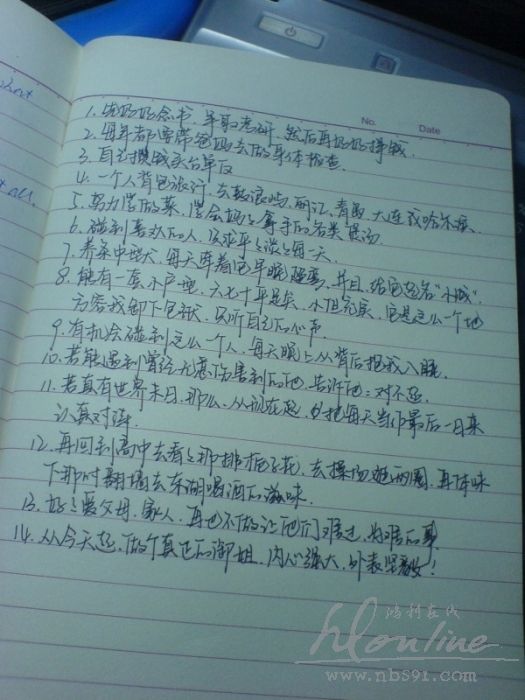 No.
Date
1. 先好好念书，争取考研，然后再好好挣钱。
2. 每年都要带爸妈去做身体检查。
3. 自己攒钱买台单反
4. 一个人背包旅行，去鼓浪屿，丽江，青岛，大连或哈尔滨。
5. 努力学做菜，学会妈妈拿手的各类煲汤
6. 碰到喜欢的人，谈平淡每一天。
7. 养条中型犬，每天牵着它早晚遛弯，并且给它起名“小贱”。
8. 能有一套小户型，六七十平足矣，小但完美，它是这么一个地
方容我卸下包袱，只听自己的心声
9. 有机会碰到这么一个人，每天晚上从背后抱我入睡
10. 若能遇到曾经无意伤害到的他，告诉他：对不起
11. 若真有世界末日，那么，从现在起，把每天当作最后一日来
认真对待
12. 再回到高中去看看那排栀子花，去操场跑两圈，再体味
下那时翻墙去东湖喝酒的滋味
13. 好好爱父母，家人，再也不做让他们难过，为难的事
14. 从今天起，做个真正的御姐，内心强大，外表坚毅！
鸿利在线
hlonline
www.nbs91.com